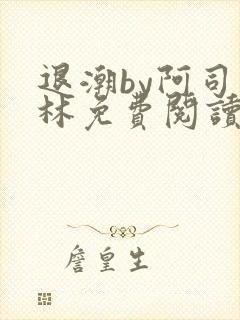 退潮by阿司
林免費閱讀
詹皇生